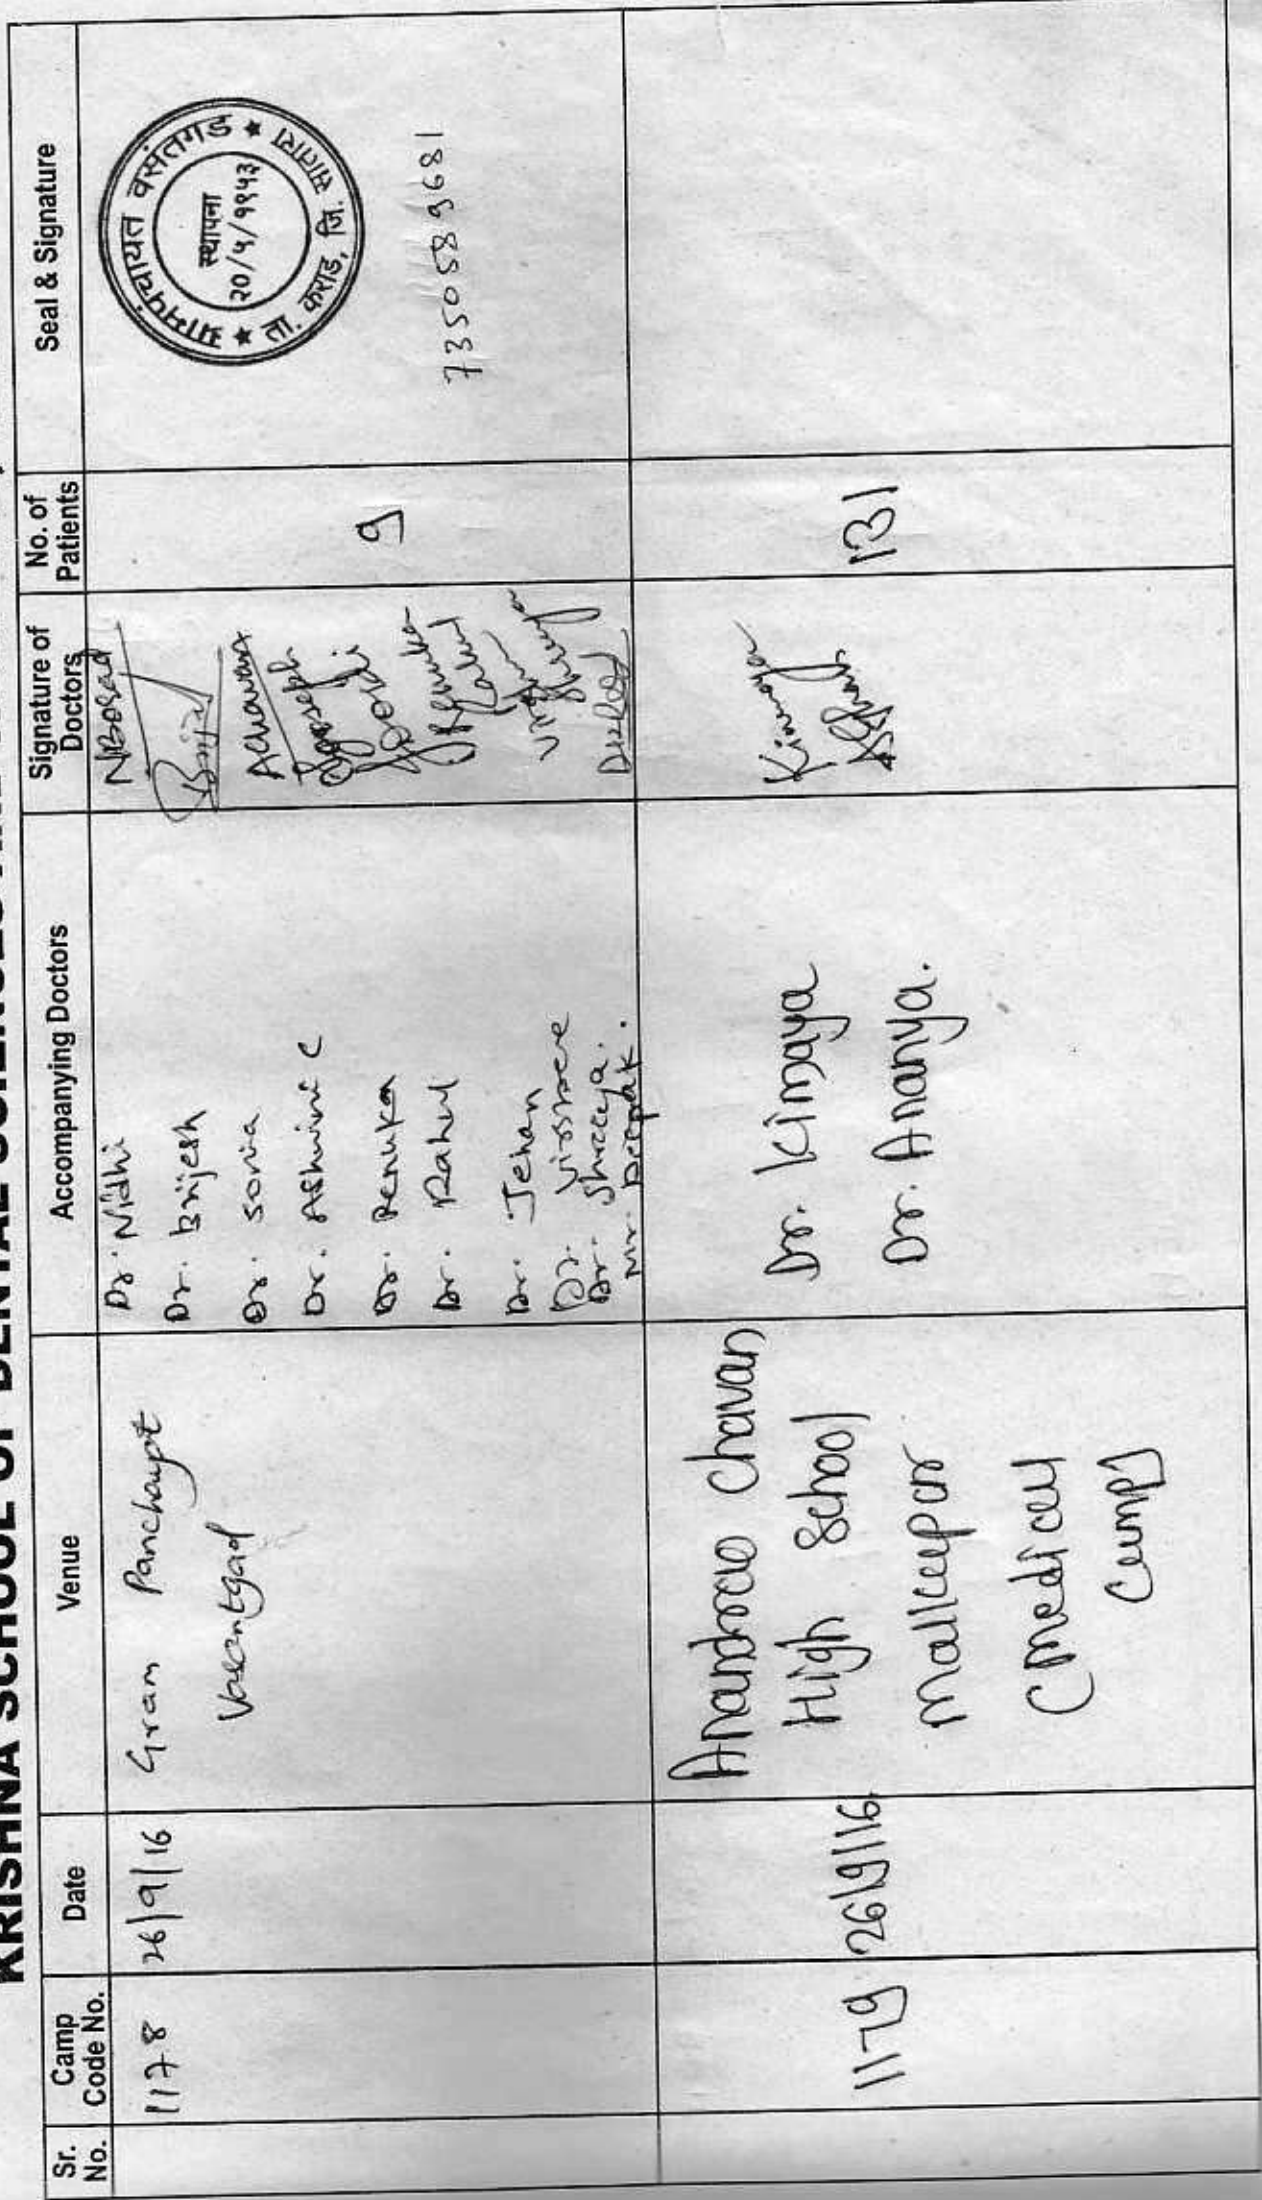 KRISHNA SCHOOL OF DENTAL SCIENCES
Sr. No.
Camp Code No.
Date
Venue
Accompanying Doctors
Signature of Doctors
No. of Patients
Seal & Signature
1178
26/9/16
Gram Panchaypt
Vasantgad
Dr. Nidhi
Dr. Brijesh
Dr. Sonia
Dr. Ashwini C
Dr. Renuka
Dr. Rahul
Dr. Jehan
Dr. Virshree
Dr. Shreeya.
Mr. Deepak.
NBorad
Achavan
Renuka
Rahul
9
ग्रामपंचायत वसंतगड
ता. कराड, जि. सातारा
स्थापना
२०/५/१९५२
7350589681
1179
26/9/16
Anandrao Chavan
High School
Malkapur
(Medical
Camp)
Dr. Kimaya
Dr. Ananya.
Kimaya
131